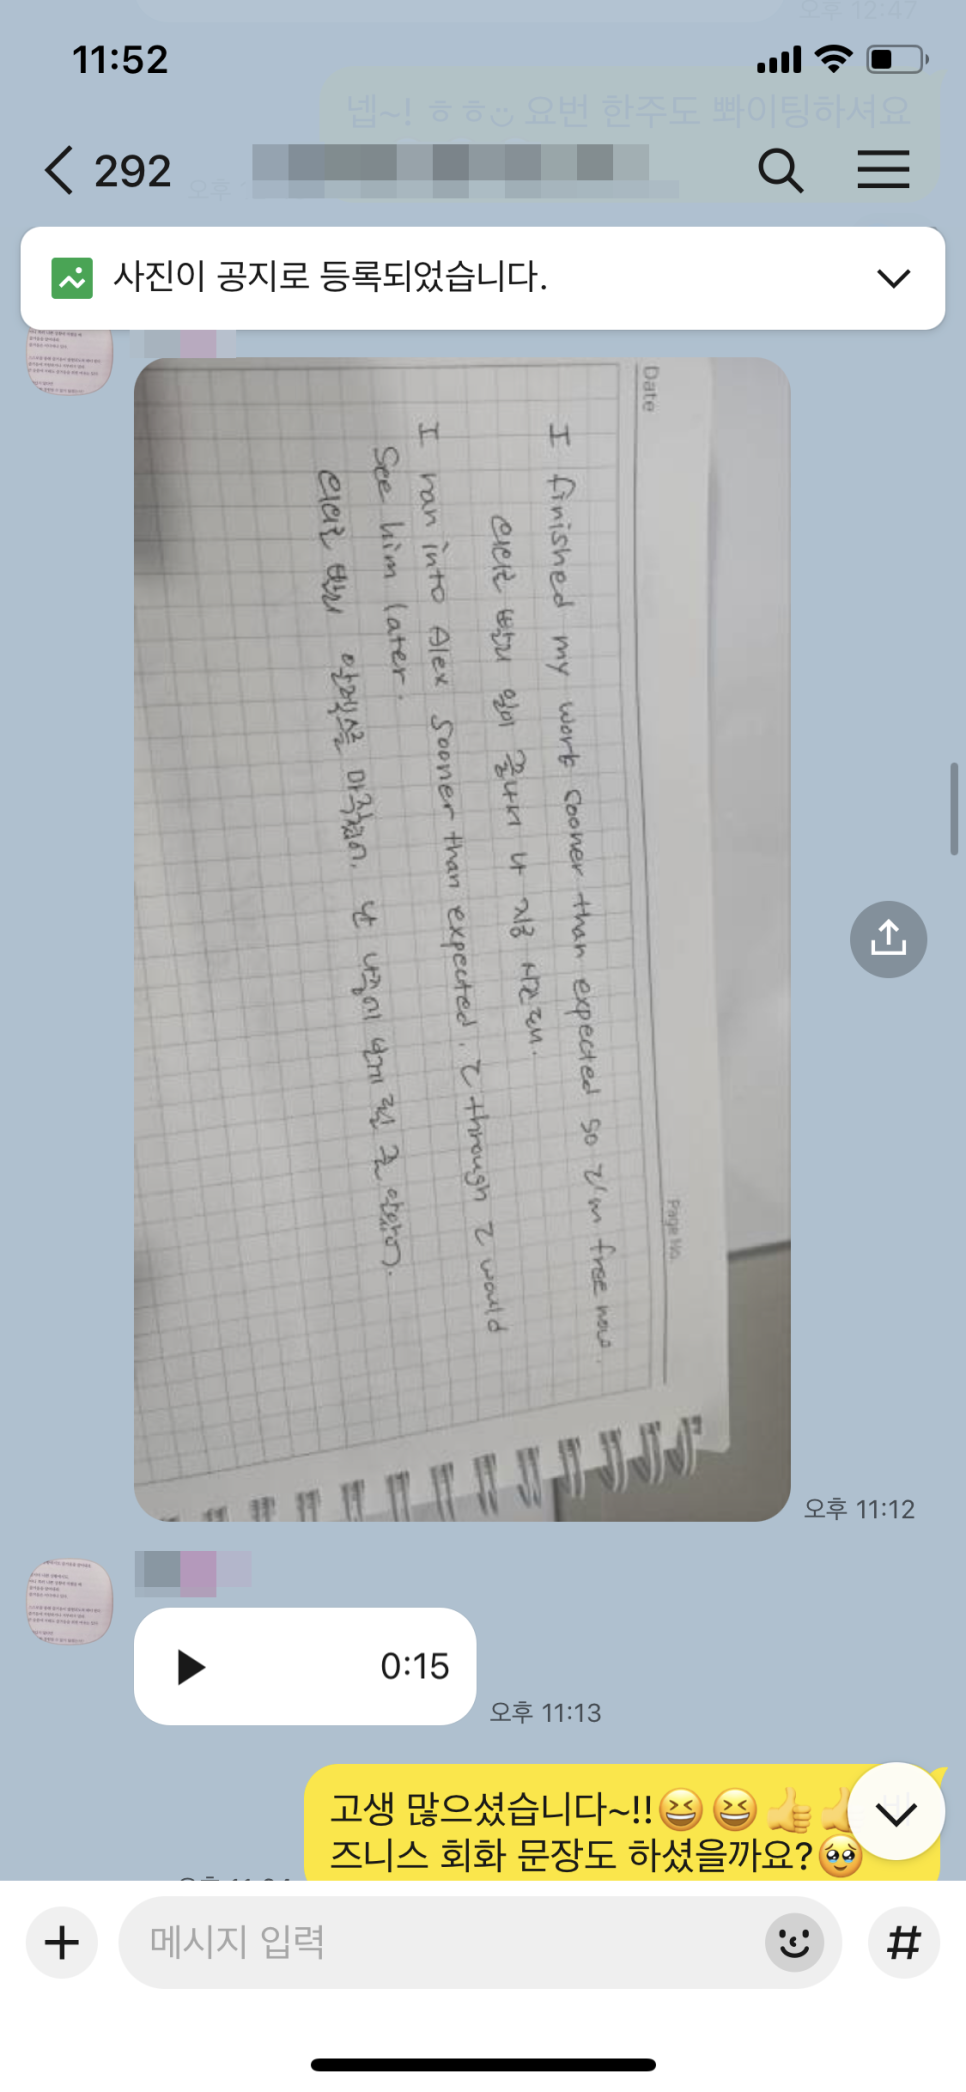 오후 12:47
11:52
넵~! ㅎㅎ 요번 한주도 빠이팅하셔요
292
사진이 공지로 등록되었습니다.
Date
Page No.
I finished my work sooner than expected so I'm free now.
빨리 일이 끝나서 나 지금
I ran into Alex sooner than expected. I through I would
see him later.
빨리 알렉스를 마주쳤어. 난 나중에 보게 될 줄 알았어.
오후 11:12
0:15
오후 11:13
고생 많으셨습니다~!!😆😆👍👍 비
즈니스 회화 문장도 하셨을까요?🥹
메시지 입력
#